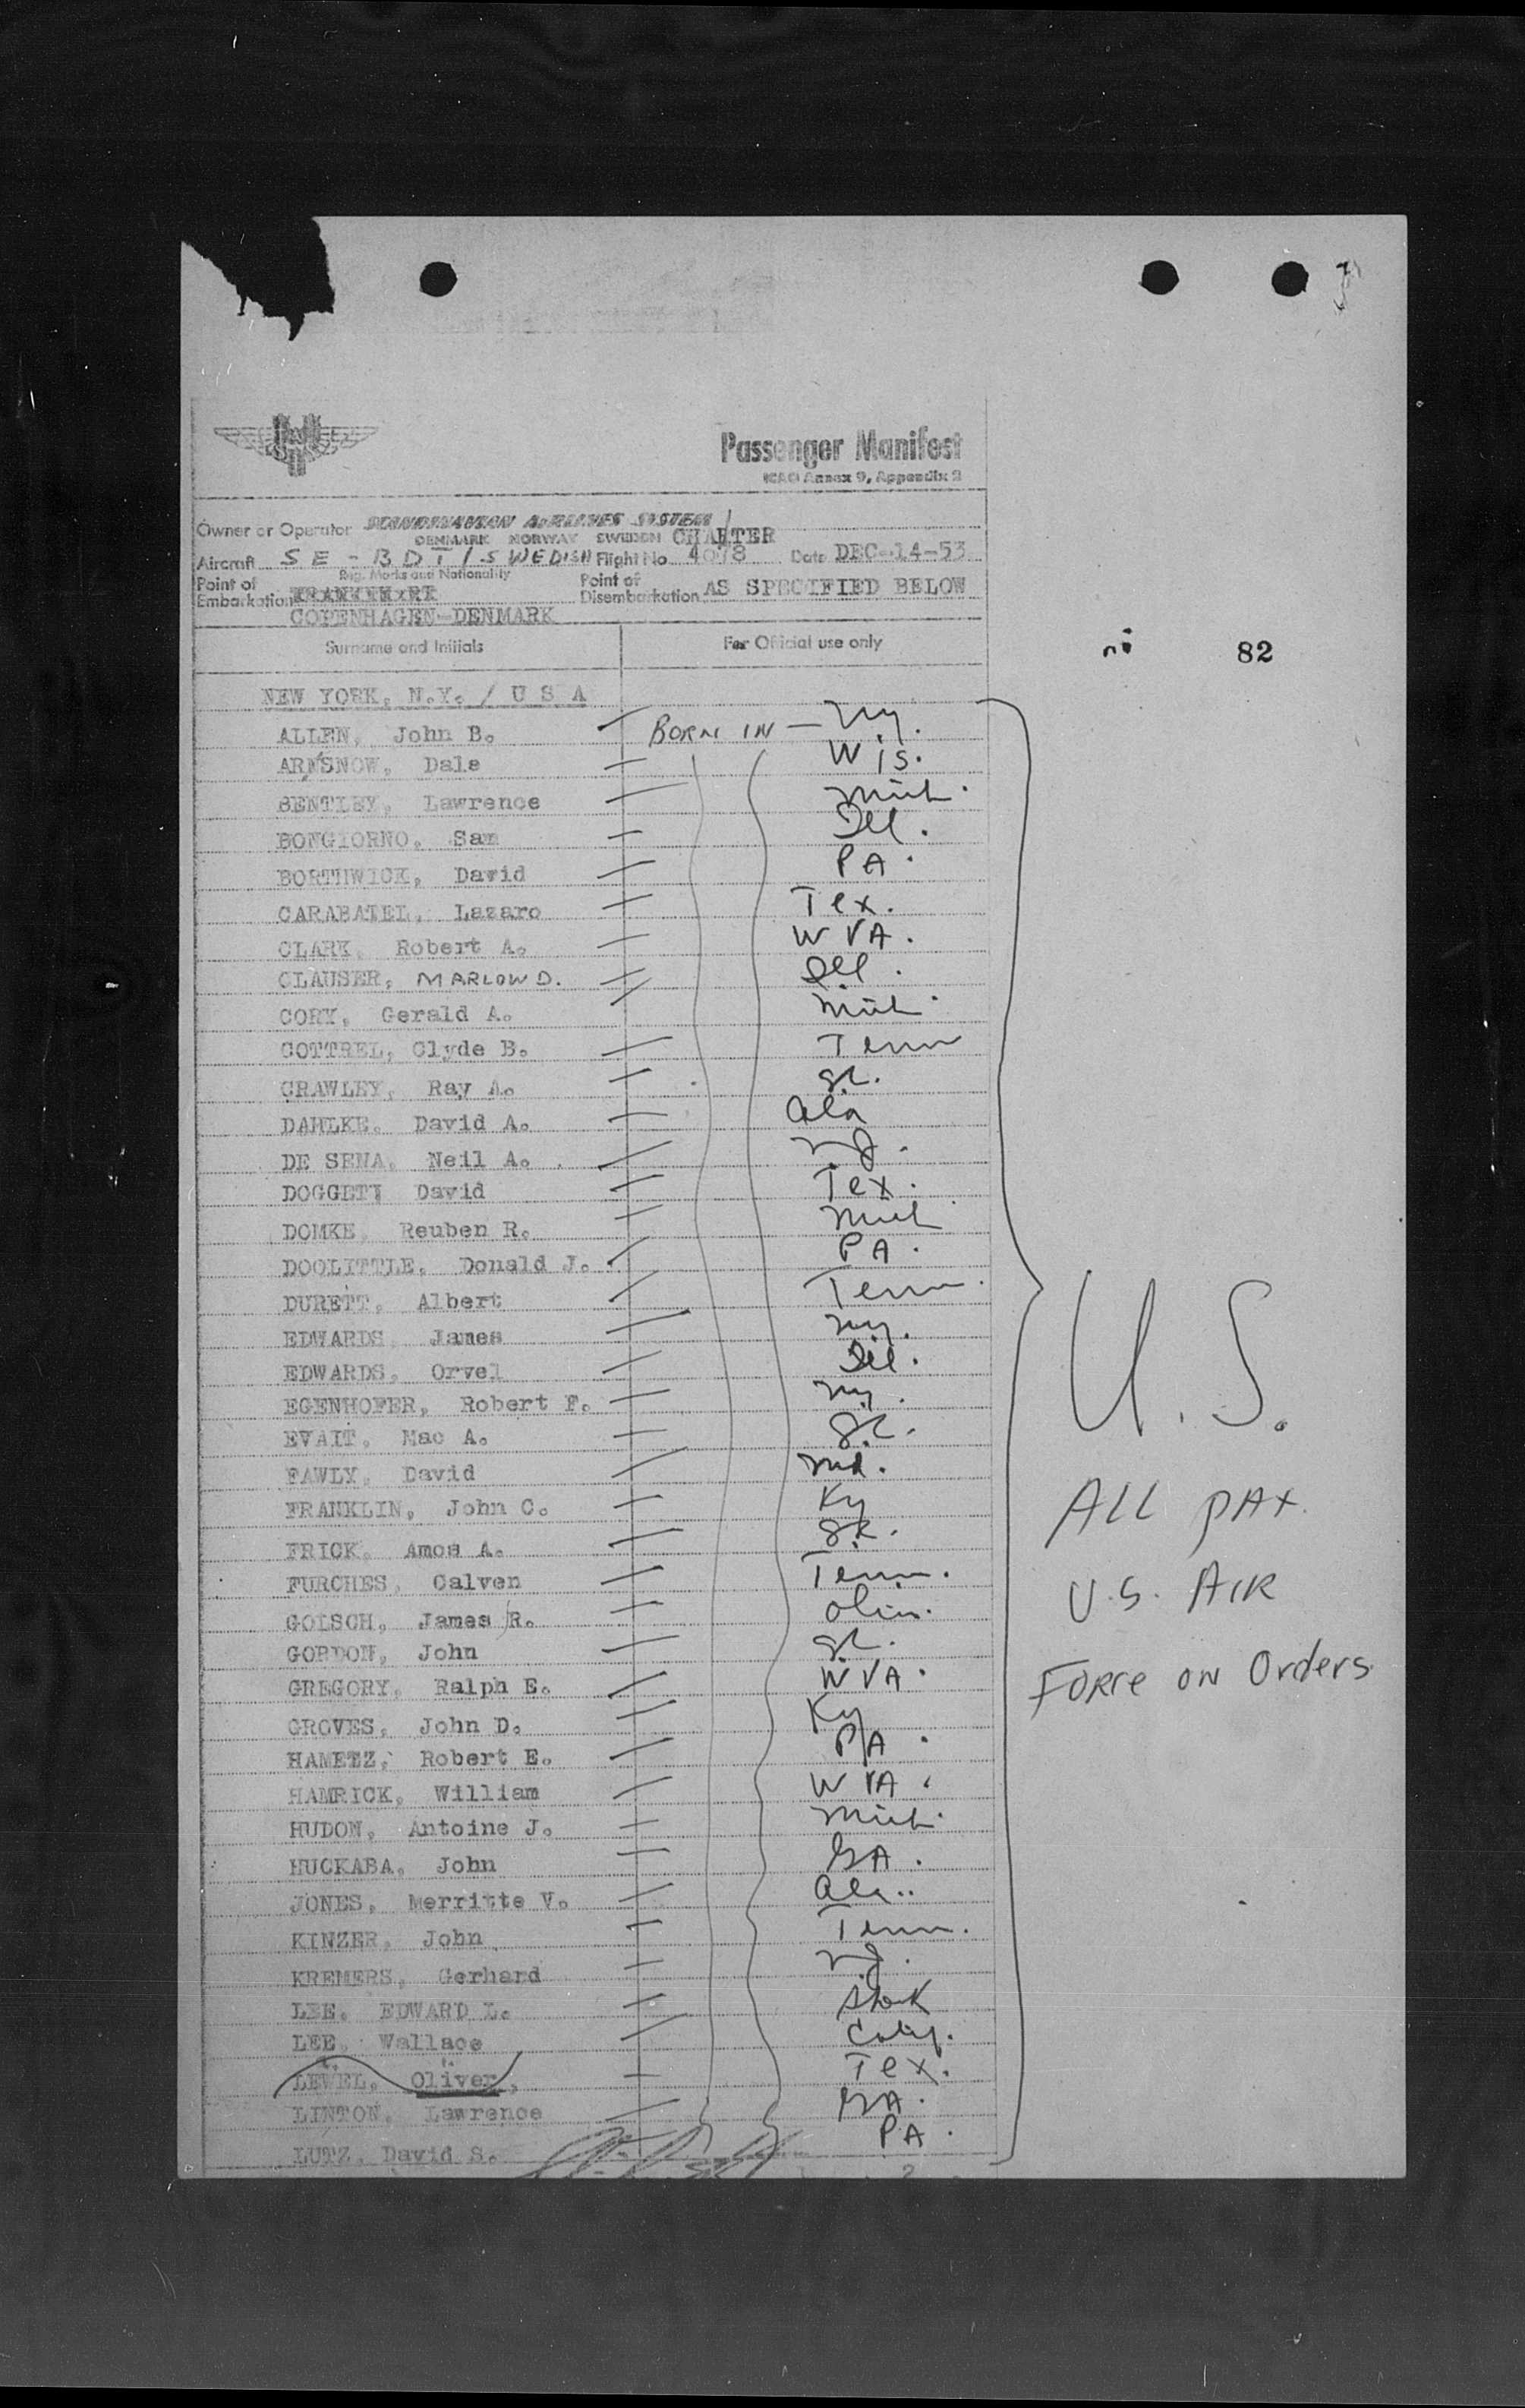 Passenger Manifest
ICAO Annex 9, Appendix 2
Owner or Operator SCANDINAVIAN AIRLINES SYSTEM /
DENMARK NORWAY SWEDEN CHARTER
Aircraft SE-BDT/SWEDISH Flight No 4078 Date DEC-14-53
Reg. Marks and Nationality
Point of Embarkation FRANKFURT
COPENHAGEN-DENMARK
Point of Disembarkation AS SPECIFIED BELOW
Surname and Initials For Official use only
82
NEW YORK, N.Y. / U S A
ALLEN, John B. BORN IN — Ny.
ARNSNOW, Dale Wis.
BENTLEY, Lawrence Mich.
BONGIORNO, Sam Ill.
BORTHWICK, David PA.
CARABATEL, Lazaro Tex.
CLARK, Robert A. W VA.
CLAUSER, MARLOW D. Ill.
CORY, Gerald A. Mich.
COTTREL, Clyde B. Tenn
CRAWLEY, Ray A. S.C.
DAHLKE, David A. Ala
DE SENA, Neil A. NJ.
DOGGETT David Tex.
DOMKE, Reuben R. Mich
DOOLITTLE, Donald J. PA.
DURETT, Albert Tenn.
EDWARDS, James Ny.
EDWARDS, Orvel Ill.
EGENHOFER, Robert F. Ny.
EVAIT, Mac A. S.C.
FAWLY, David Md.
FRANKLIN, John C. Ky
FRICK, Amos A. S.C.
FURCHES, Calven Tenn.
GOLSCH, James R. Ohio.
GORDON, John S.C.
GREGORY, Ralph E. W VA.
GROVES, John D. Ky
HAMETZ, Robert E. PA.
HAMRICK, William W VA.
HUDON, Antoine J. Mich.
HUCKABA, John GA.
JONES, Merritte V. Ala..
KINZER, John Tenn.
KREMERS, Gerhard NJ.
LEE, EDWARD L.
LEE, Wallace Calif.
LEWEL, Oliver, Tex.
LINTON, Lawrence GA.
LUTZ, David S. PA.
U.S.
ALL PAX.
U.S. AIR
FORCE ON Orders.